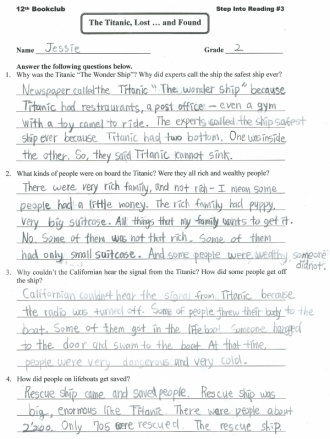 12th Bookclub Step Into Reading #3
The Titanic, Lost ... and Found
Name Jessie Grade 2
Answer the following questions below.
1. Why was the Titanic "The Wonder Ship"? Why did experts call the ship the safest ship ever?
Newspaper called the Titanic "The wonder ship" because
Titanic had restaurants, a post office - even a gym
with a toy camel to ride. The experts called the ship safest
ship ever because Titanic had two bottom. One was inside
the other. So, they said Titanic kannot sink.
2. What kinds of people were on board the Titanic? Were they all rich and wealthy people?
There were very rich family, and not rich - I mean some
people had a little money. The rich family had puppy,
very big suitcase. All things that my family wants to get it.
No. Some of them was not that rich. Some of them
had only small suitcase. And some people were wealthy, someone
did not.
3. Why couldn't the Californian hear the signal from the Titanic? How did some people get off
the ship?
Californian couldn't hear the signal from Titanic because
the radio was turned off. Some of people threw their body to the
boat. Some of them got in the life boat. Someone hanged
to the door and swam to the boat. At that time,
people were very dangerous and very cold.
4. How did people on lifeboats get saved?
Rescue ship came and saved people. Rescue ship was
big, enormous like Titanic. There were people about
2'200. Only 705 were rescued. The rescue ship